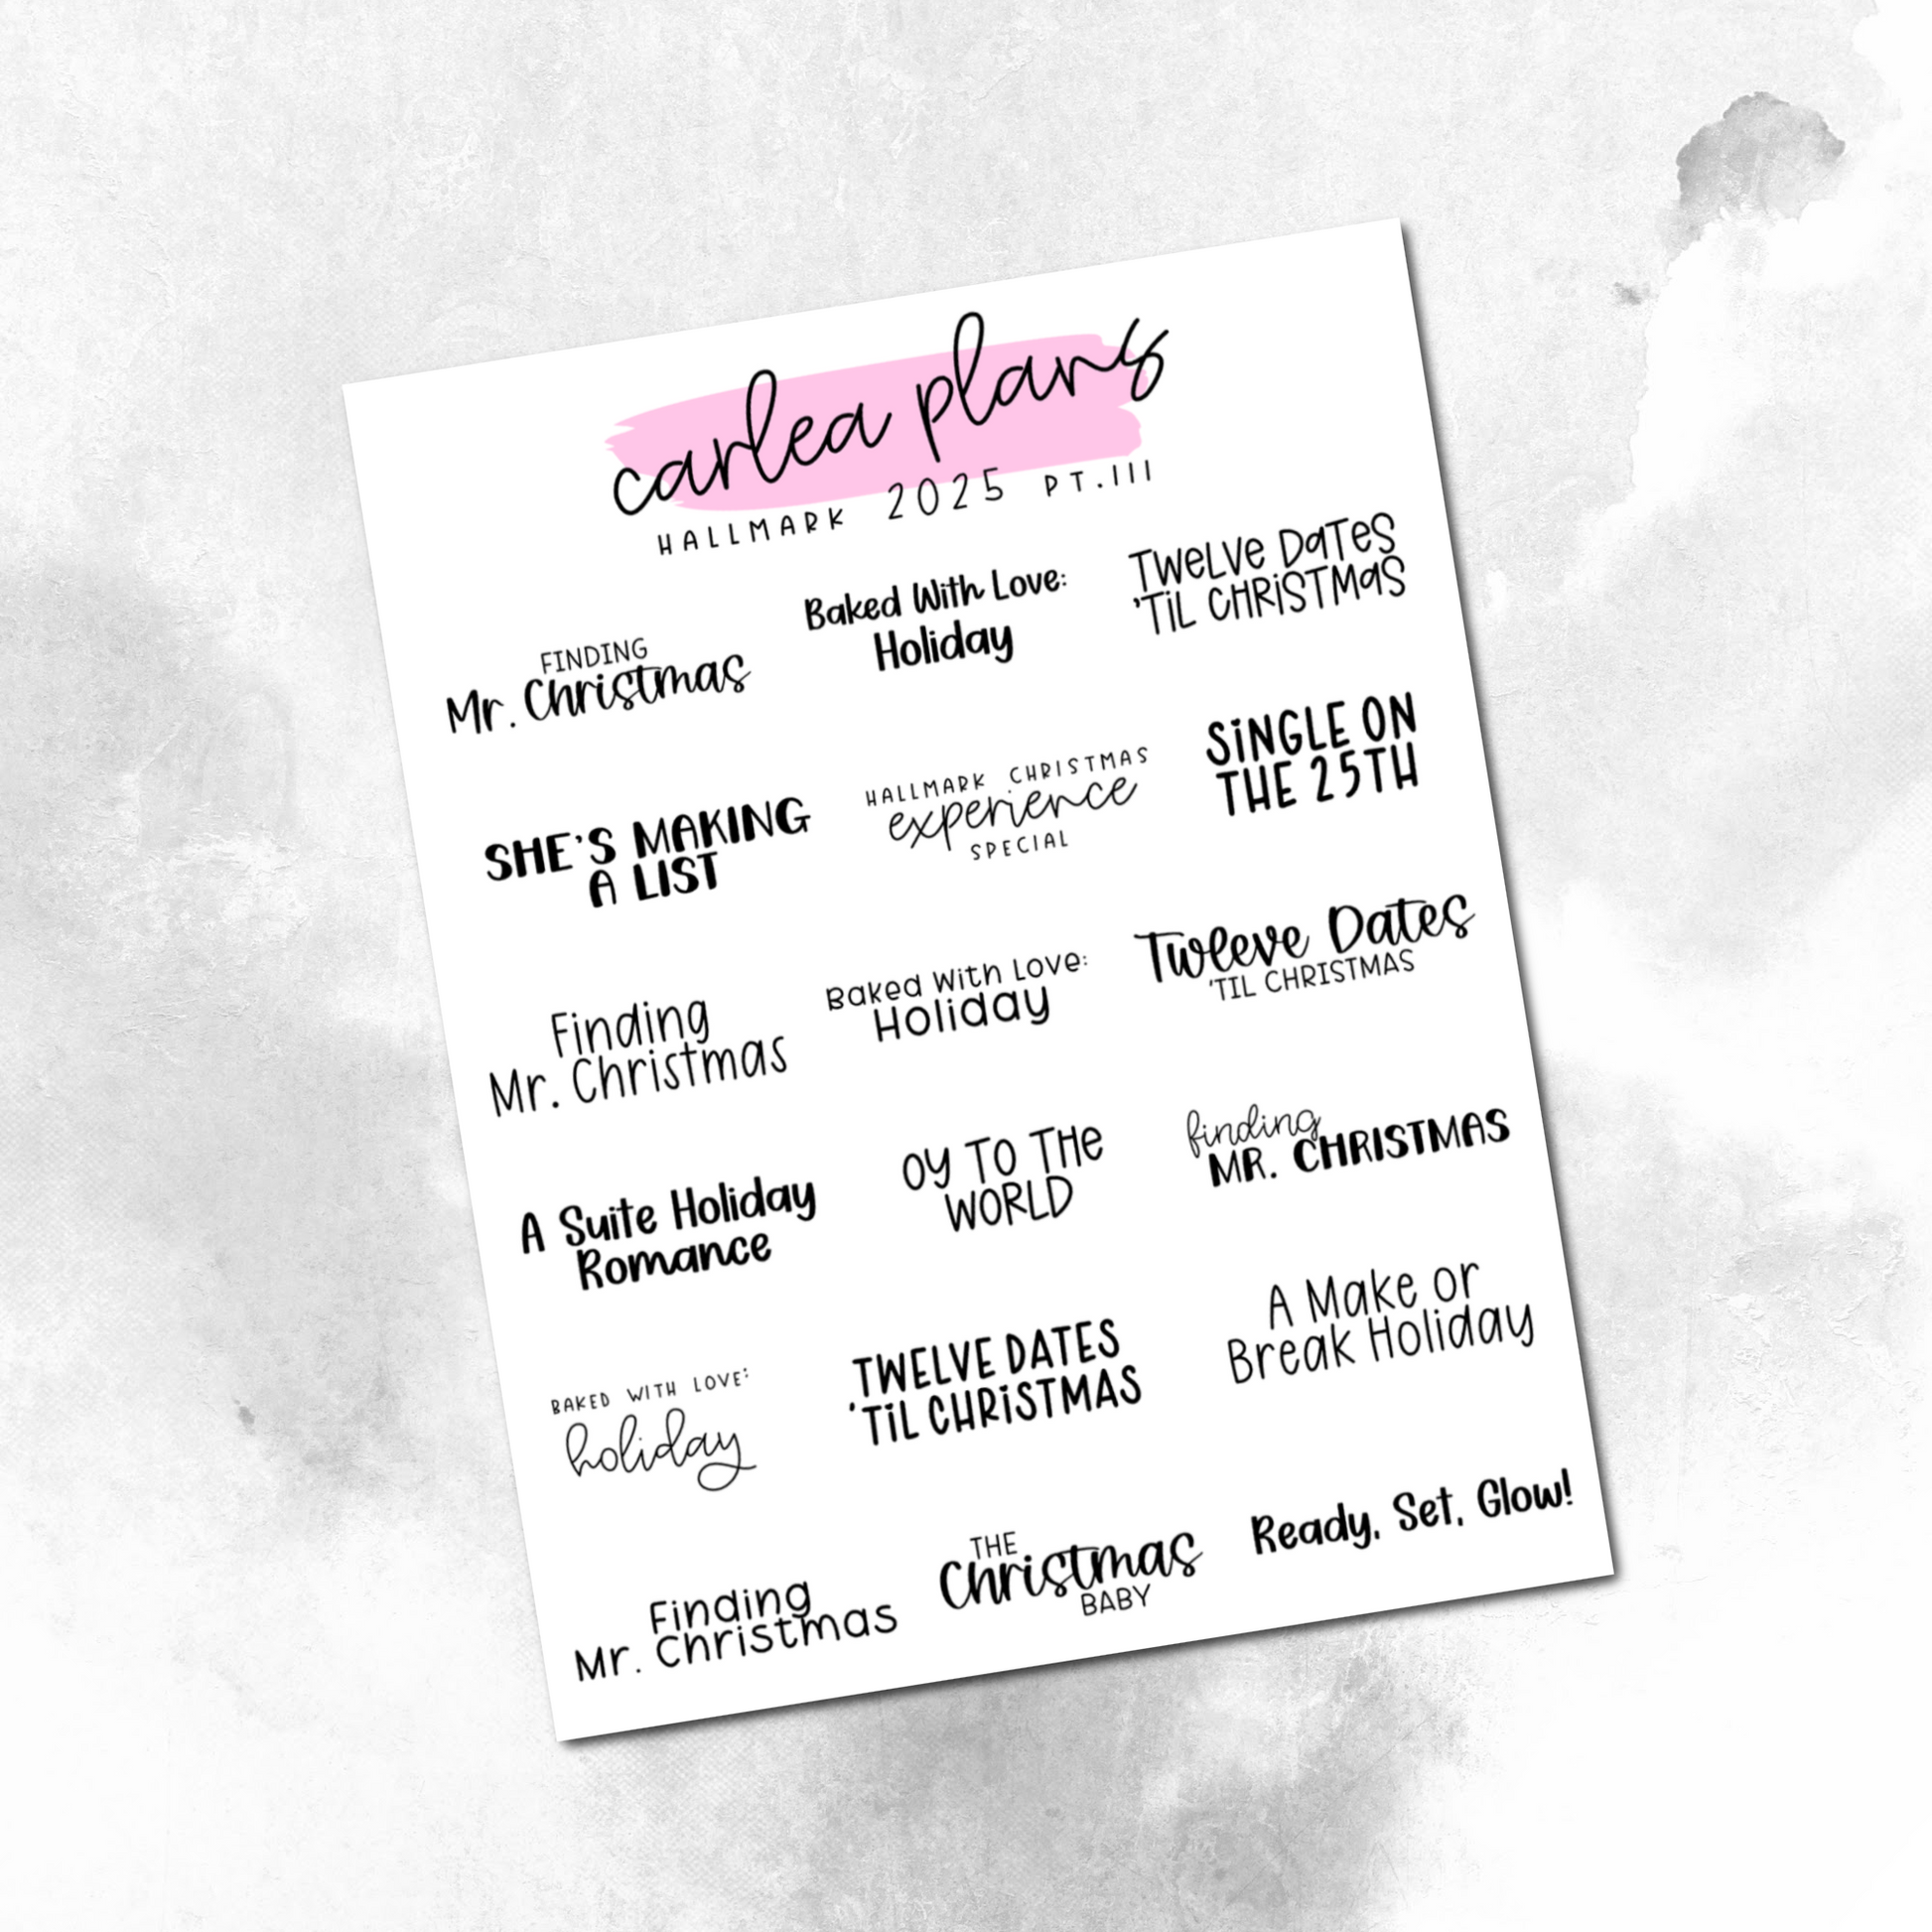 carlea plans
HALLMARK 2025 PT.III
FINDING
Mr. Christmas
Baked With Love:
Holiday
TWeLVe DaTeS
'TiL CHRiSTMaS
SHE'S MAKING
A LIST
HALLMARK CHRISTMAS
experience
SPECIAL
SiNGLE ON
THE 25TH
Finding
Mr. Christmas
Baked With Love:
Holiday
Tweleve Dates
'TIL CHRISTMAS
A Suite Holiday
Romance
OY TO THe
WORLD
finding
MR. CHRISTMAS
BAKED WITH LOVE:
holiday
TWELVE DATES
'TiL CHRiSTMAS
A Make or
Break Holiday
Finding
Mr. Christmas
THE
Christmas
BABY
Ready, Set, Glow!